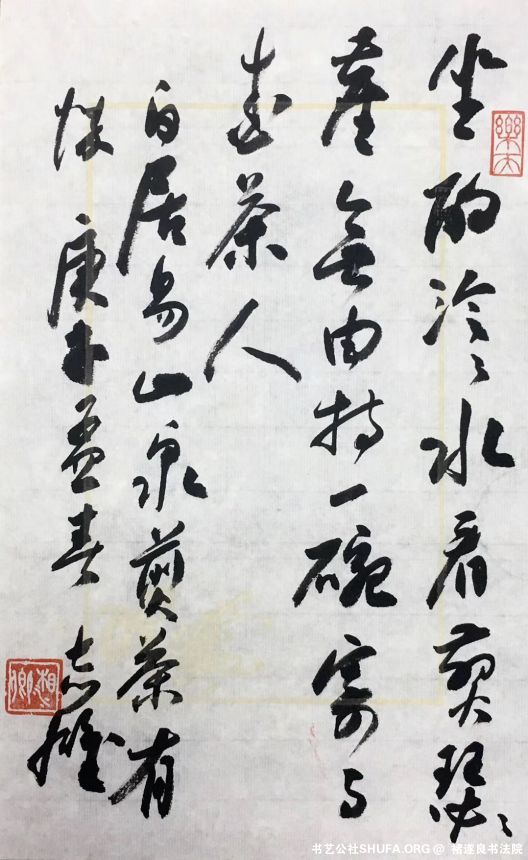 坐酌泠泠水看煎瑟瑟
塵無由持一碗寄与
愛茶人
白居易山泉煎茶有
懷 庚子孟春 志
樂天
书艺公社SHUFA.ORG @ 褚遂良书法院